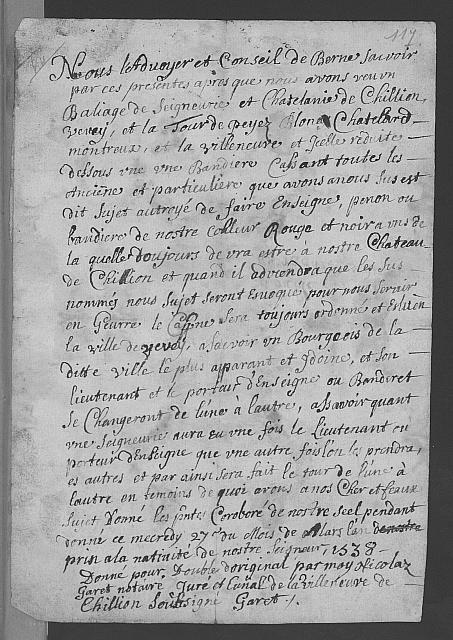 117
Nous l'Advoyer et Conseil de Berne scavoir
par ces presentes apres que nous avons veu un
Baliage de Seigneurie et Chatelanie de Chillion,
vevey, et la Tour de peyez Blonay Chatelard
montreux, et la villeneuve et Jcelle reduite
dessous une vne Bandiere Cassant toutes les
Anciene et particuliere que avons a nous susest
dit sujet autroyé de faire Enseigne, penon ou
bandiere de nostre colleur Rouge et noir avns de
la quelle doujours de vra estre a nostre Chateau
de Chillion et quand il adviendra que les sus
nommés nous sujet seront Evoqué pour nous servir
en Geurre le Capine sera toujours ordonné et Esleu en
la ville de vevey a scavoir vn Bourgeois de la
ditte ville le plus apparant et ydoine, et son
lieutenant et le porteur d'Enseigne ou Banderet
se Changeront de l'une à lautre, assavoir quant
vne seigneurie aura eu vne fois le Lieutenant ou
porteur d'Enseigne que vne autre fois l'on les prendra,
es autres et par ainsi sera fait le tour de l'une à
lautre en temoins de quoi avons a nos Cher et feaux
sujet Donné les pntes Corobore de nostre seel pendant
donné ce mecredy 27e du Mois de Mars l'an denostre
prin a la nativité de nostre seigneur, 1538
Donne pour Double d'original par moy Nicolaz
Garet notaire Juré et Curial de la villeneuve de
Chillion Soubsigné Garet